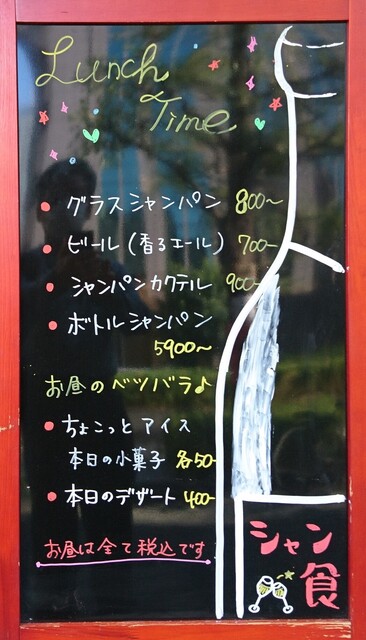 Lunch
Time
グラスシャンパン 800~
ビール (香るエール) 700~
シャンパンカクテル 900~
ボトルシャンパン
5900~
お昼のベツバラ♪
ちょこっとアイス
本日の小菓子 各50-
本日のデザート 400-
お昼は全て税込です
シャン
食